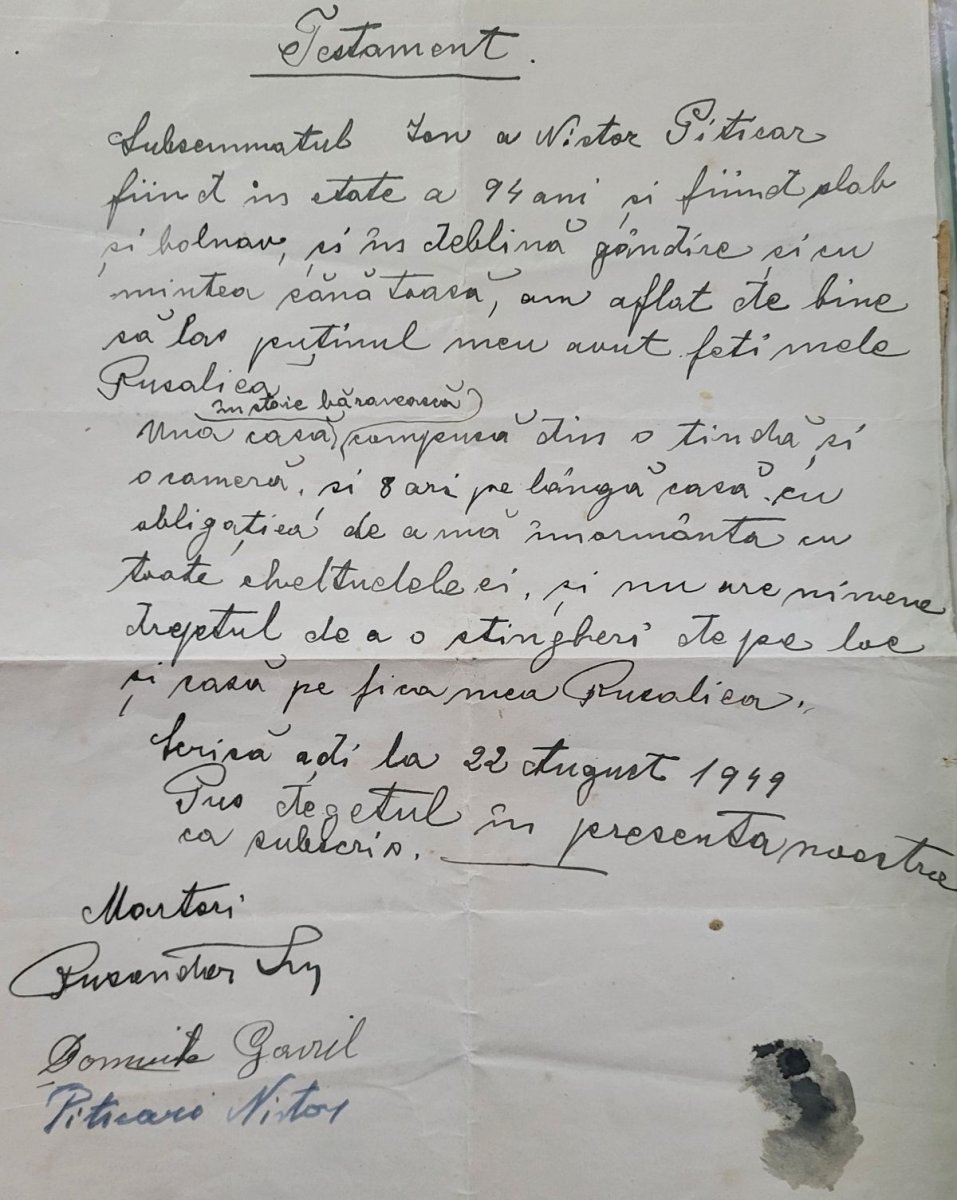 Testament.
Subsemmatul Ion a Nistor Piticar
fiind în etate a 94 ani și fiind slab
și bolnav, și în deblină gândire și cu
mintea sănătoasă, am aflat de bine
să las puținul meu avut feti mele
Rusalica
în stare
Una casă (compusă din o tindă și
o cameră, și 8 ari pe lângă casă cu
obligația de a mă înormânta cu
toate cheltuelele ei, și nu are nimene
dreptul de a o stingheri de pe loc
și casă pe fica mea Rusalica.
Scrisă adi la 22 August 1949
Pus degetul în presența noastră
ca subscris.
Martori
Rusandar
Gavril
Piticari Nistor